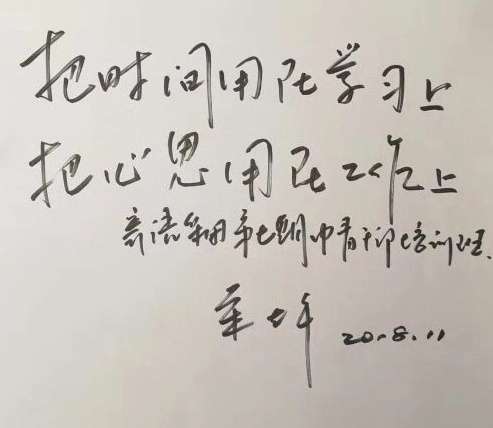 把时间用在学习上
把心思用在工作上
寄语第七期中青干部培训班.
20.8.11